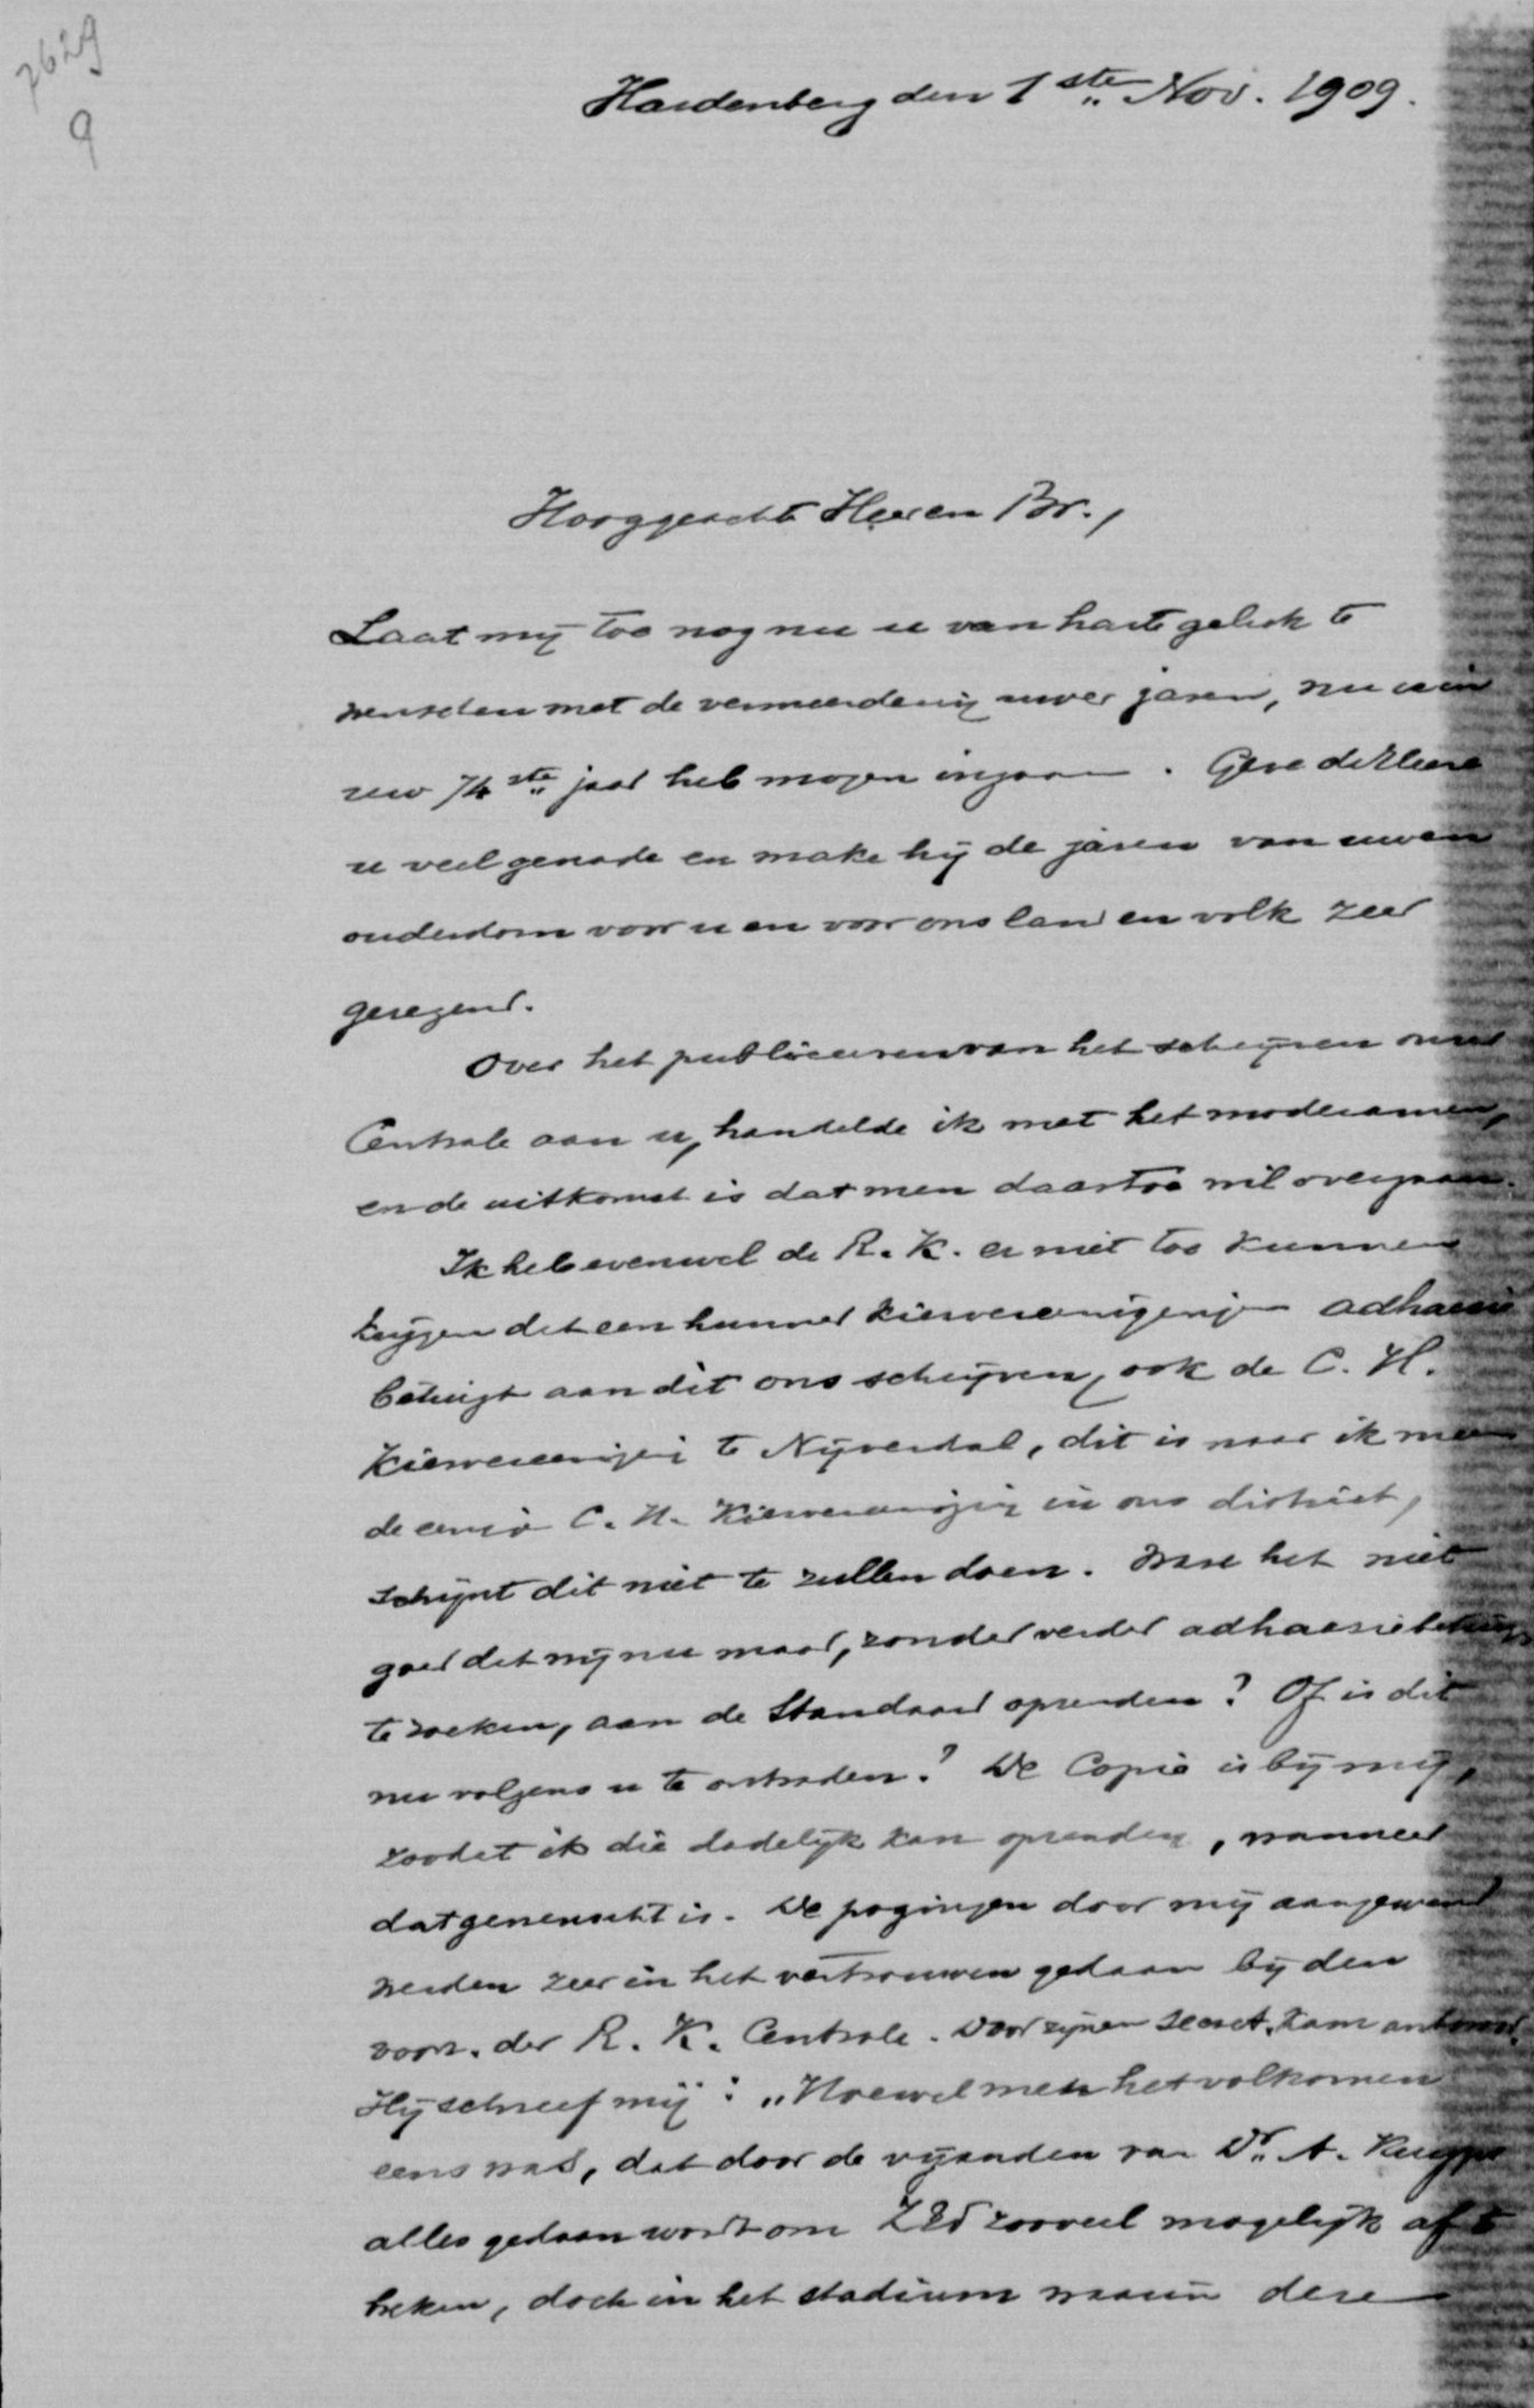 7629
9
Hardenberg den 1ste Nov. 1909.
Hooggeachte Heer en Br.,
Laat mij toe nog nu u van harte geluk te
wenschen met de vermeerdering uwer jaren, nu u in
uw 74ste jaar heb mogen ingaan. Geve de Heere
u veel genade en make hij de jaren van uwen
ouderdom voor u en voor ons land en volk zeer
gezegend.
Over het publiceeren van het schrijven onzer
Centrale aan u, handelde ik met het moderamen,
en de uitkomst is dat men daartoe wil overgaan.
Ik heb evenwel de R. K. er niet toe kunnen
krijgen dat een hunner kiesvereenigingen adhaesie
betuigt aan dit ons schrijven, ook de C. H.
Kiesvereeniging te Nijverdal, dit is naar ik meen
de eenige C. H. Kiesvereeniging in ons district,
schijnt dit niet te zullen doen. Ware het niet
goed dat wij nu maar, zonder verder adhaesiebetuiging
te zoeken, aan de Standaard opzenden? Of is dit
nu volgens u te ontraden? De Copie is bij mij,
zoodat ik die dadelijk kan opzenden, wanneer
dat gewenscht is. De pogingen door mij aangewend
werden zeer in het vertrouwen gedaan bij den
voorz. der R. K. Centrale. Door zijnen Secret. kam antwoord.
Hij schreef mij: „Hoewel men het volkomen
eens was, dat door de vijanden van Dr. A. Kuyper
alles gedaan wordt om ZEd zooveel mogelijk af te
breken, doch in het stadium waarin deze